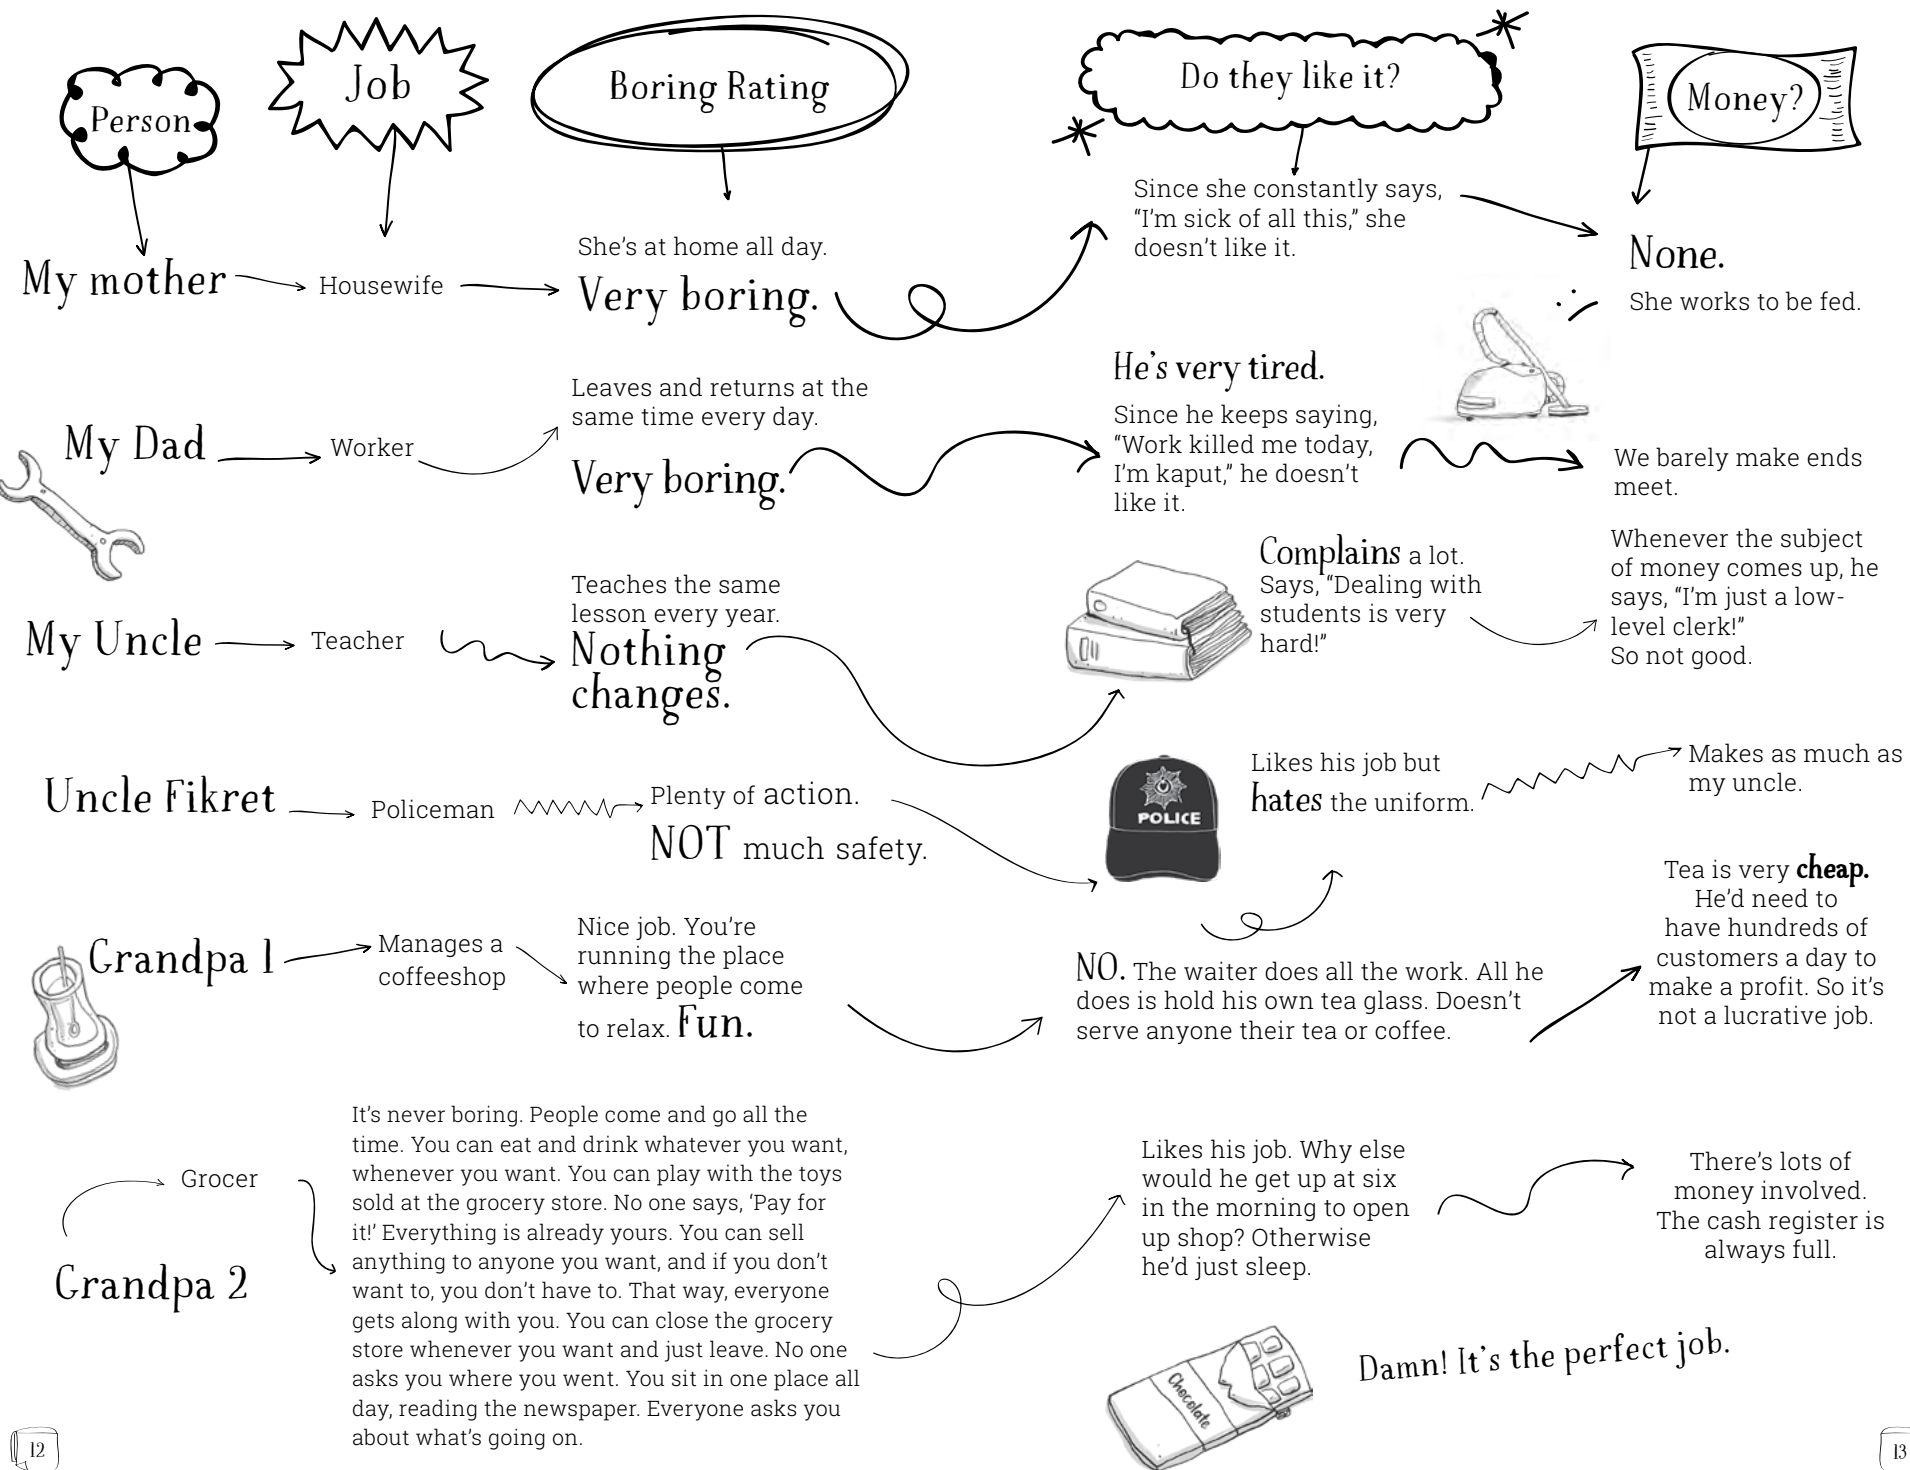 Person
Job
Boring Rating
Do they like it?
Money?
My mother
Housewife
She’s at home all day.
Very boring.
Since she constantly says,
“I’m sick of all this,” she
doesn’t like it.
None.
She works to be fed.
My Dad
Worker
Leaves and returns at the
same time every day.
Very boring.
He’s very tired.
Since he keeps saying,
“Work killed me today,
I’m kaput,” he doesn’t
like it.
We barely make ends
meet.
My Uncle
Teacher
Teaches the same
lesson every year.
Nothing
changes.
Complains a lot.
Says, “Dealing with
students is very
hard!”
Whenever the subject
of money comes up, he
says, “I’m just a low-
level clerk!”
So not good.
Uncle Fikret
Policeman
Plenty of action.
NOT much safety.
POLICE
Likes his job but
hates the uniform.
Makes as much as
my uncle.
Grandpa 1
Manages a
coffeeshop
Nice job. You’re
running the place
where people come
to relax. Fun.
NO. The waiter does all the work. All he
does is hold his own tea glass. Doesn’t
serve anyone their tea or coffee.
Tea is very cheap.
He’d need to
have hundreds of
customers a day to
make a profit. So it’s
not a lucrative job.
Grandpa 2
Grocer
It’s never boring. People come and go all the
time. You can eat and drink whatever you want,
whenever you want. You can play with the toys
sold at the grocery store. No one says, ‘Pay for
it!’ Everything is already yours. You can sell
anything to anyone you want, and if you don’t
want to, you don’t have to. That way, everyone
gets along with you. You can close the grocery
store whenever you want and just leave. No one
asks you where you went. You sit in one place all
day, reading the newspaper. Everyone asks you
about what’s going on.
Likes his job. Why else
would he get up at six
in the morning to open
up shop? Otherwise
he’d just sleep.
There’s lots of
money involved.
The cash register is
always full.
Chocolate
Damn! It’s the perfect job.
12
13